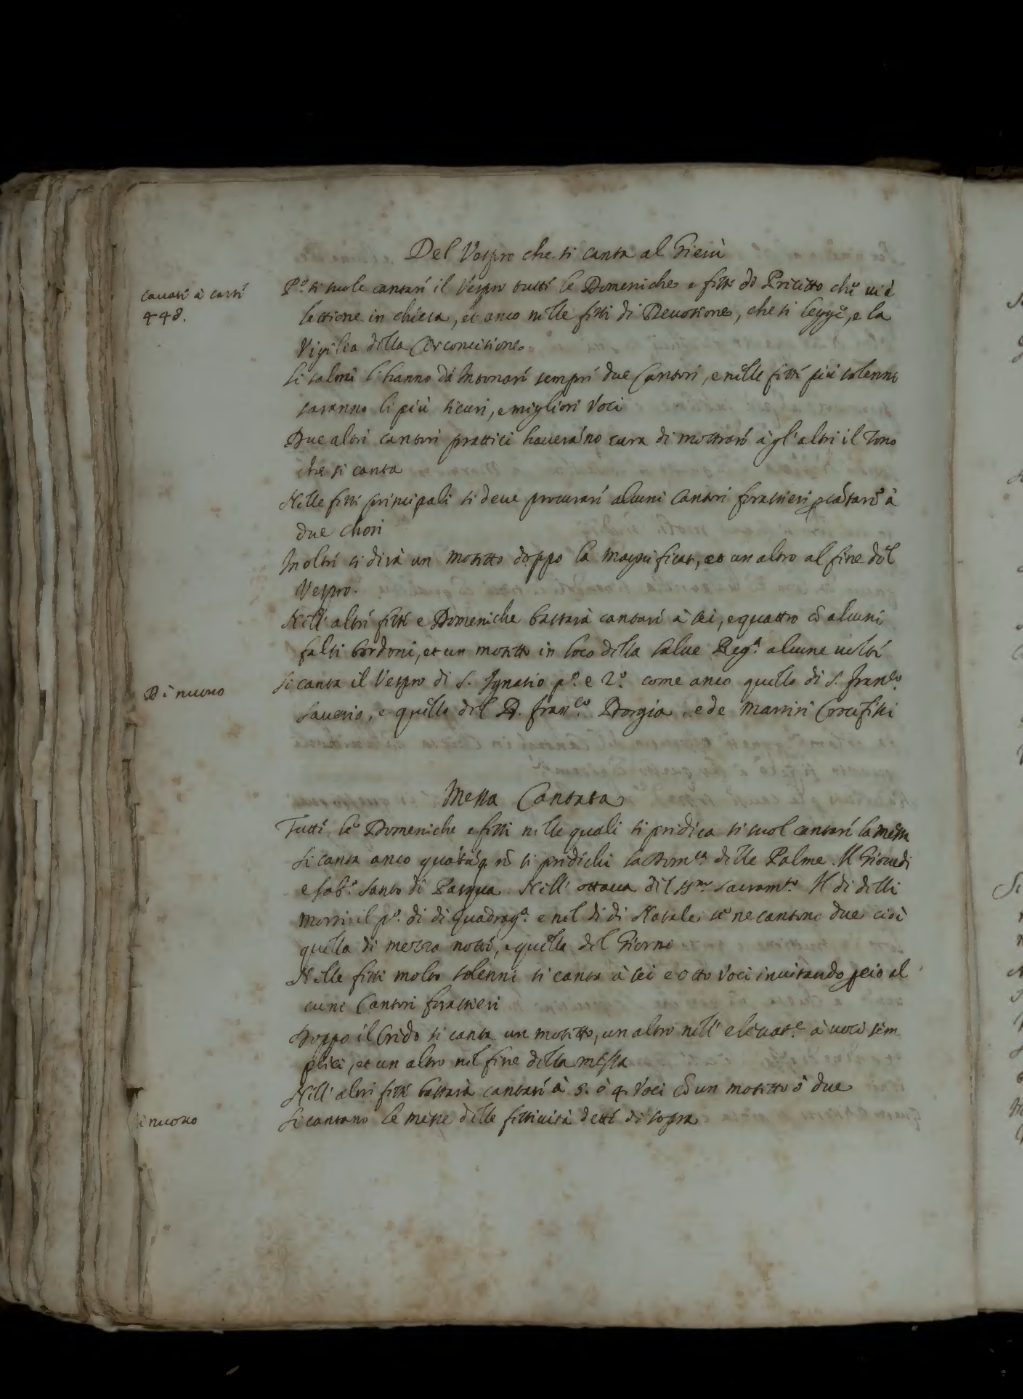 Del Vespro che si canta al Giesù
cavati à carte
448.
P.º si suole cantare il Vespro tutte le Domeniche e feste di Precetto che vi è
lettione in chiesa, et anco nelle feste di Devotione, che si legge, e la
Vigilia della Circoncisione
Li salmi l'hanno da Intonare sempre due Cantori, e nelle feste più solenni
saranno li più sicuri, e migliori Voci
Due altri cantori prattici haveranno cura di mostrare à gl'altri il Tono
che si canta
Nelle feste principali si deve procurare alcuni Cantori forastieri p cãtare à
due chori
Inoltre si dirà un motetto doppo la Magnificat, et un altro al fine del
Vespro.
Nell'altre feste e Domeniche bastarà cantare à sei, e quattro cõ alcuni
falsi bordoni, et un motetto in loco della Salve Reg.ª alcune volte
Di nuovo
Si canta il Vespro di S. Ignatio p.º e 2.º come anco quello di S. Fran.co
Saverio, e quello del B. Fran.co Borgia, e de Martiri Crocefissi
Messa Cantata
Tutte le Domeniche e feste nelle quali si predica si suol cantare la messa
Si canta anco nõ si predichi la Dom.ca delle Palme. Il Giovedi
e Sab.º Santo di Pasqua. Nell'ottava del SS.mo Sacram.to Il di delli
morti il p.º di di Quadrag.ª e nel di di Natale se ne cantino due cioè
quella di mezza notte, e quella del Giorno
Nelle feste molto solenni si canta à sei e otto Voci invitando p ciò al
cuni Cantori forastieri
Doppo il Credo si canta un motetto, un altro nell'elevat.e à voci sem
plici, et un altro nel fine della messa
Nell'altre feste bastarà cantare à 5. ò 4. Voci cõ un motetto ò due
di nuovo
Si cantano le messe delle festività dette di sopra